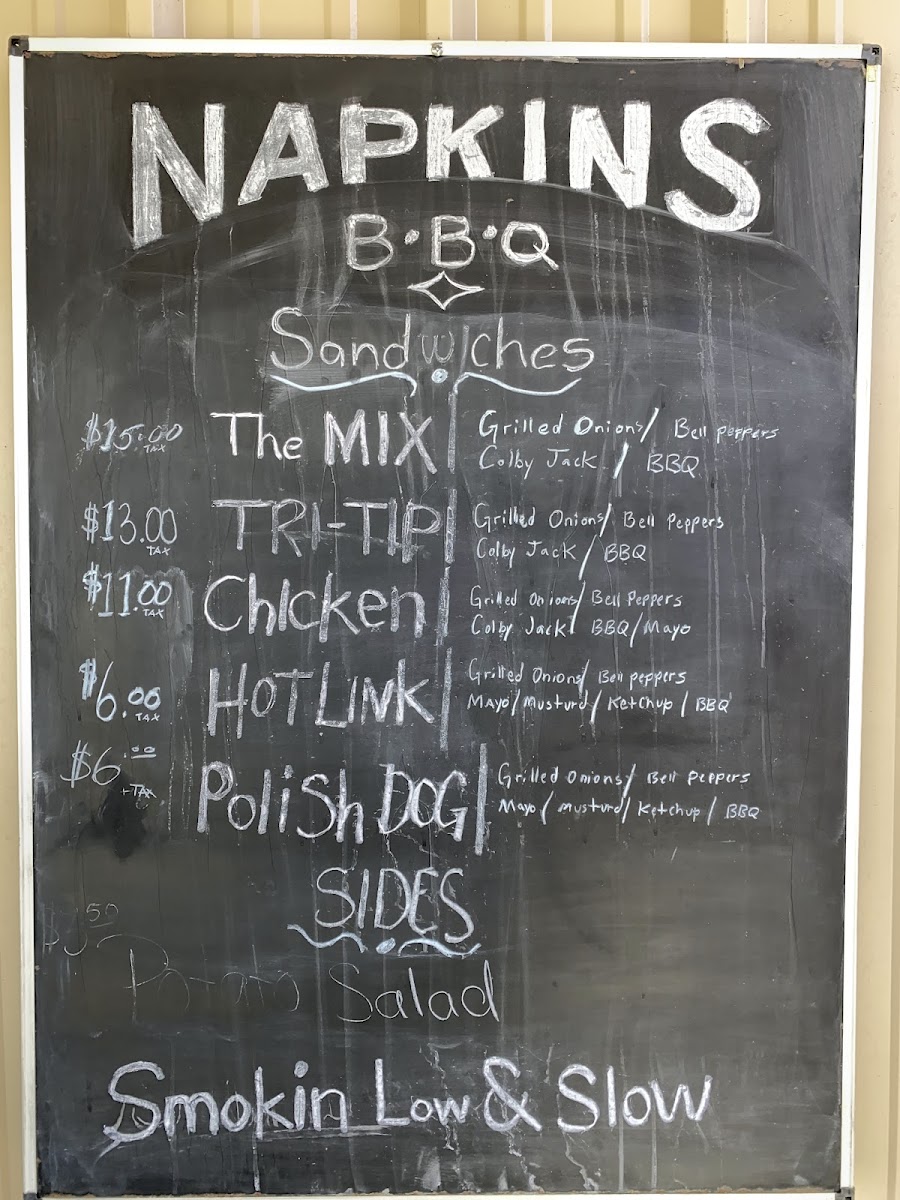 NAPKINS
B•B•Q
Sandwiches
$15.00 TAX The MIX | Grilled Onions / Bell peppers
Colby Jack / BBQ
$13.00 TAX TRI-TIP | Grilled Onions / Bell Peppers
Colby Jack / BBQ
$11.00 TAX Chicken | Grilled Onions / Bell Peppers
Colby Jack / BBQ / Mayo
$6.00 TAX HOT LINK | Grilled Onions / Bell peppers
Mayo / Musturd / Ketchup / BBQ
$6.00 +TAX Polish DOG | Grilled Onions / Bell peppers
Mayo / musturd / Ketchup / BBQ
SIDES
Potato Salad
Smokin Low & Slow